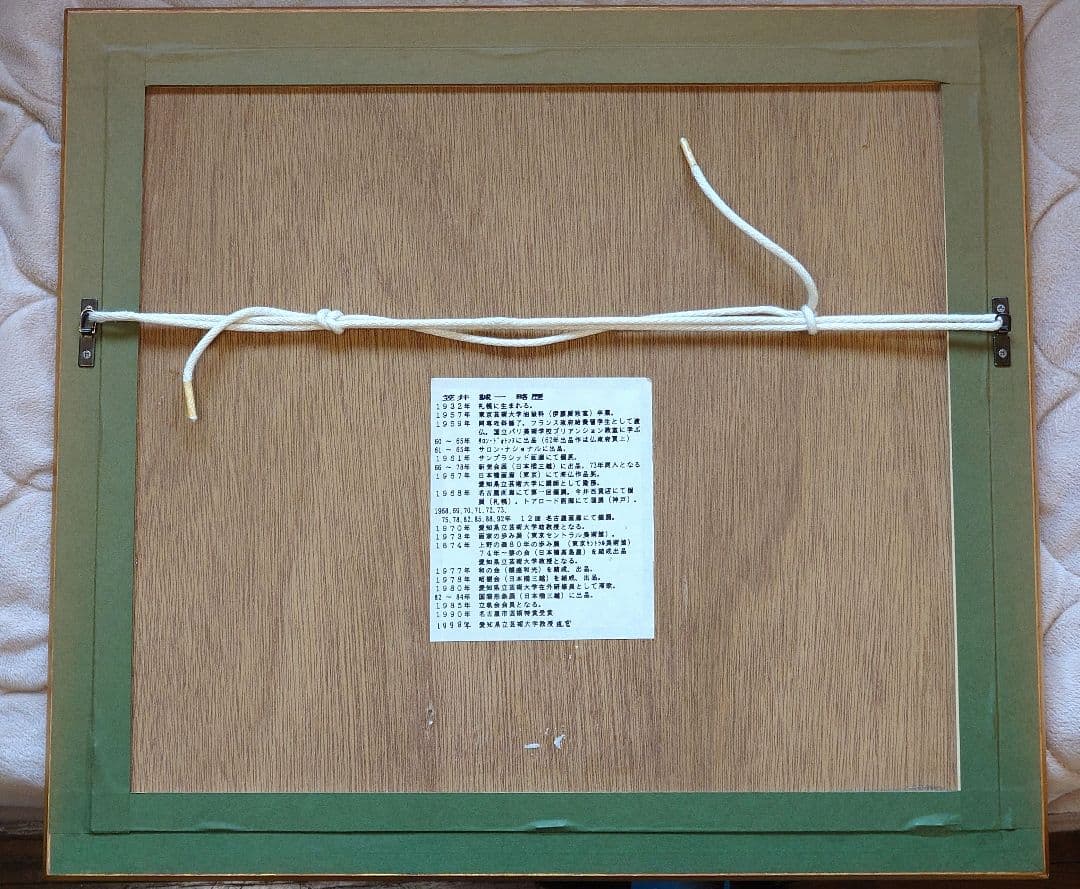 笠井 誠一 略歴
1932年 札幌に生まれる。
1957年 東京芸術大学油画科（伊藤廉教室）卒業。
1959年 同専攻科修了。フランス政府給費留学生として渡
仏。国立パリ美術学校ブリアンション教室に学ぶ
60～65年 ｻﾛﾝ･ﾄﾞｵﾄﾝﾇに出品（62年出品作は仏政府買上）
61～65年 サロン・ナショナルに出品。
1961年 にて個展。
66～78年 新樹会展（日本橋三越）に出品。73年同人となる
1967年 日本橋画廊（東京）にて滞仏作品展。
愛知県立芸術大学に講師として勤務。
1968年 名古屋画廊にて第一回個展。今井百貨店にて個
展（札幌）。トアロード画廊にて個展（神戸）。
1968,69,70,71,72,73,
75,78,82,85,88,92年 12回 名古屋画廊にて個展。
1970年 愛知県立芸術大学助教授となる。
1973年 画家の歩み展（東京セントラル美術館）。
1674年 上野の森80年の歩み展（東京ｾﾝﾄﾗﾙ美術館）
74年～ の会（日本橋高島屋）を結成出品
愛知県立芸術大学教授となる。
1977年 和の会（銀座和光）を結成、出品。
1978年 会（日本橋三越）を結成、出品。
1980年 愛知県立芸術大学在外研修員として渡欧。
82～84年 国際形象展（日本橋三越）に出品。
1985年 立軌会会員となる。
1990年 名古屋市芸術特賞受賞
1998年 愛知県立芸術大学教授退官